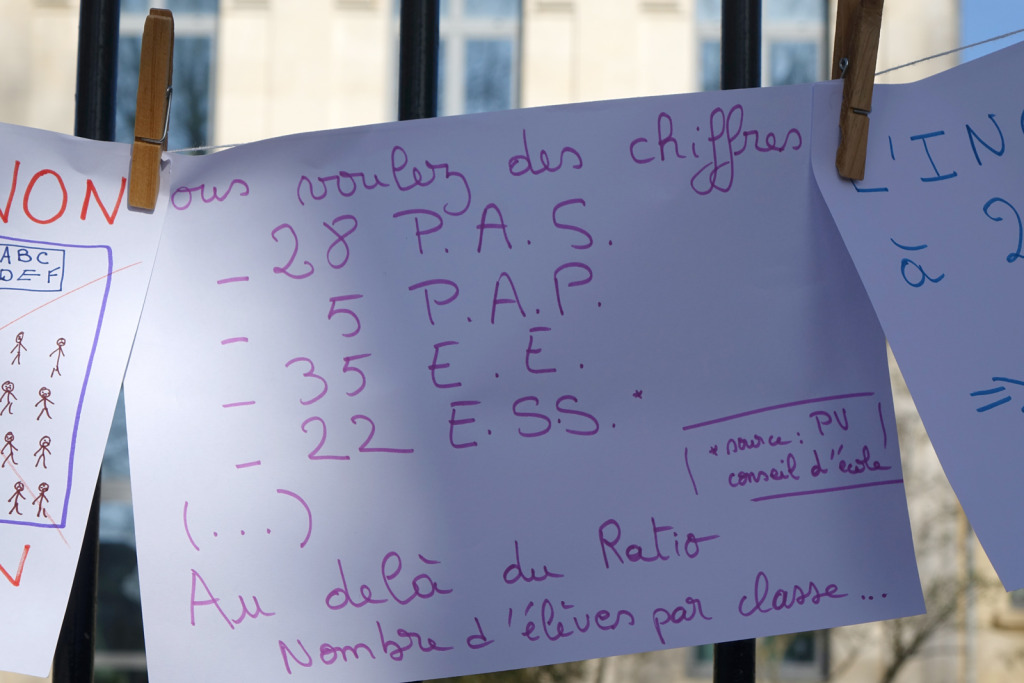 NON
ABC
DEF
N
ous voulez des chiffres
- 28 P.A.S.
- 5 P.A.P.
- 35 E.E.
- 22 E.S.S.*
*source: PV
conseil d'école
(...)
Au delà du Ratio
Nombre d'élèves par classe...
L'IN
à 2
=>